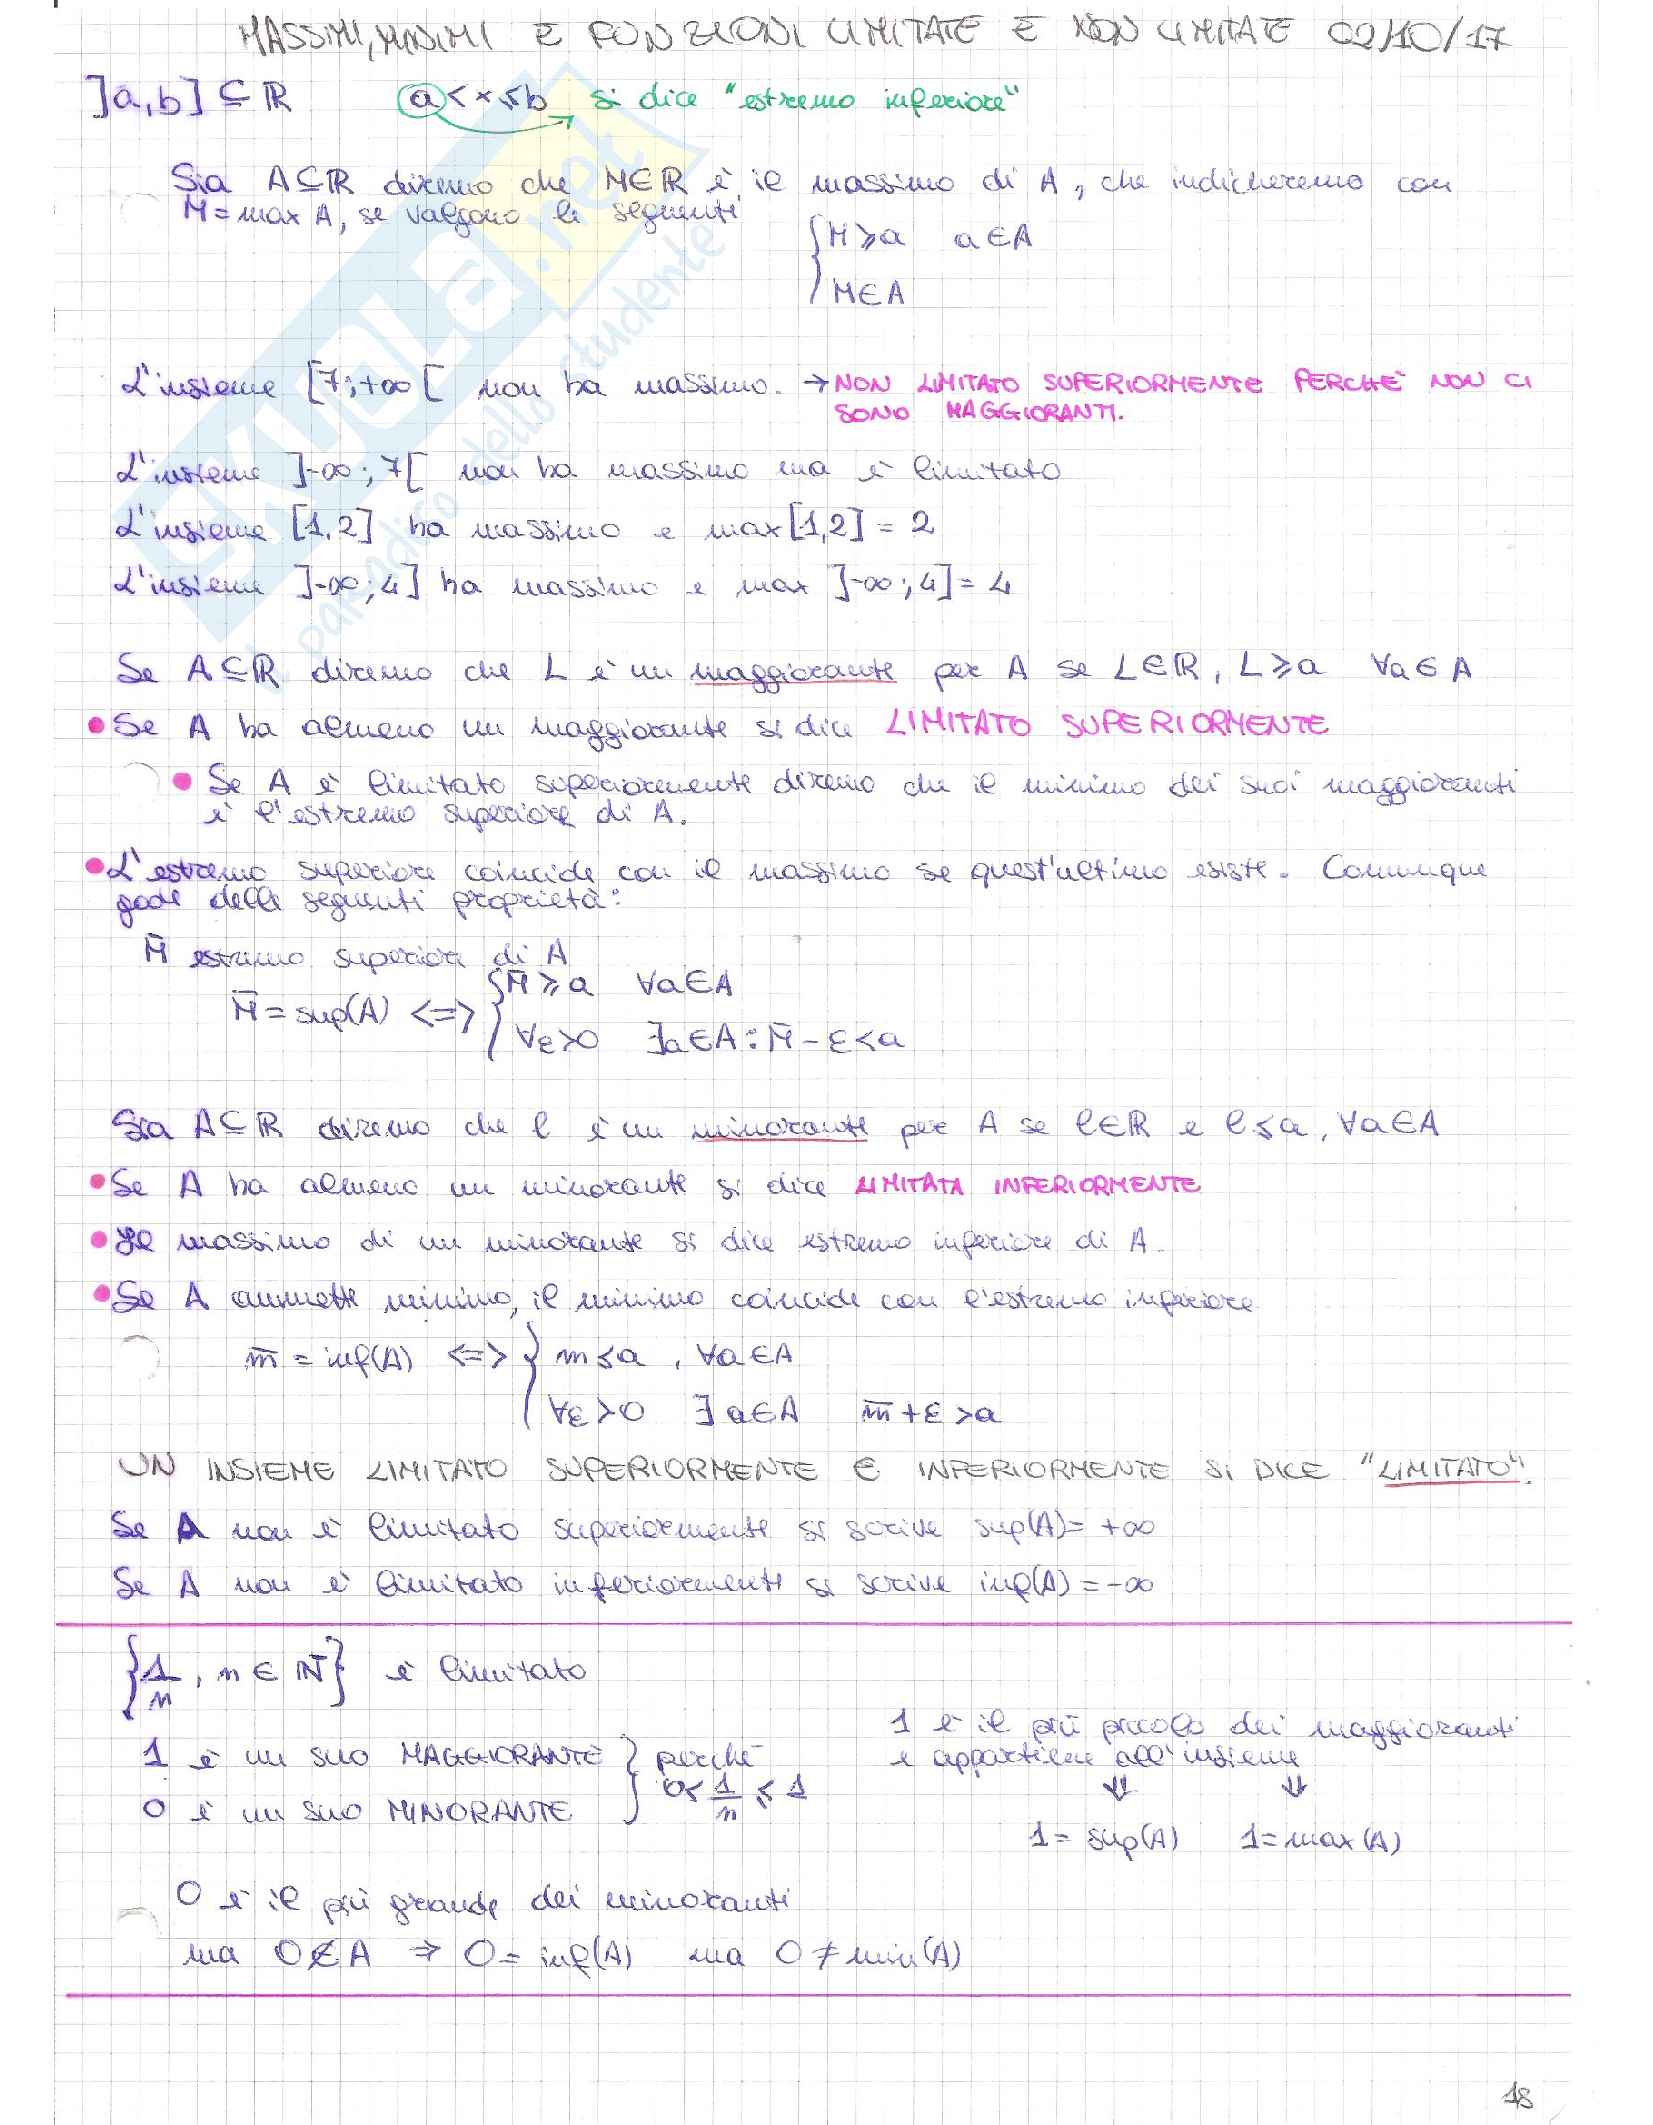 MASSIMI, MINIMI E FUNZIONI LIMITATE E NON LIMITATE 02/10/17
]a,b] ⊆ ℝ a < x ≤ b si dice "estremo inferiore"
Sia A⊆ℝ diremo che M∈ℝ è il massimo di A, che indicheremo con
M = max A, se valgono le seguenti
{ M ⩾ a a∈A
M∈A
L'insieme [7;+∞[ non ha massimo. → NON LIMITATO SUPERIORMENTE PERCHÈ NON CI
SONO MAGGIORANTI.
L'insieme ]-∞;7[ non ha massimo ma è limitato
L'insieme [1,2] ha massimo e max[1,2] = 2
L'insieme ]-∞;4] ha massimo e max ]-∞;4] = 4
Se A⊆ℝ diremo che L è un maggiorante per A se L∈ℝ, L⩾a ∀a∈A
• Se A ha almeno un maggiorante si dice LIMITATO SUPERIORMENTE
• Se A è limitato superiormente diremo che il minimo dei suoi maggioranti
è l'estremo superiore di A.
• L'estremo superiore coincide con il massimo se quest'ultimo esiste. Comunque
gode delle seguenti proprietà:
M̄ estremo superiore di A
M̄ = sup(A) <=> { M̄ ⩾ a ∀a∈A
∀ε>0 ∃a∈A : M̄ - ε < a
Sia A⊆ℝ diremo che l è un minorante per A se l∈ℝ e l⩽a, ∀a∈A
• Se A ha almeno un minorante si dice LIMITATA INFERIORMENTE
• Il massimo di un minorante si dice estremo inferiore di A.
• Se A ammette minimo, il minimo coincide con l'estremo inferiore
m̄ = inf(A) <=> { m ⩽ a , ∀a∈A
∀ε>0 ∃a∈A m̄+ε>a
UN INSIEME LIMITATO SUPERIORMENTE E INFERIORMENTE SI DICE "LIMITATO".
Se A non è limitato superiormente si scrive sup(A) = +∞
Se A non è limitato inferiormente si scrive inf(A) = -∞
{ 1/n , n∈ℕ } è limitato
1 è il più piccolo dei maggioranti
1 è un suo MAGGIORANTE } perché e appartiene all'insieme
0 è un suo MINORANTE 0 < 1/n ⩽ 1 ⇓ ⇓
1 = sup(A) 1 = max(A)
0 è il più grande dei minoranti
ma 0∉A ⇒ 0 = inf(A) ma 0 ≠ min(A)
18
SKUOLA.net
il paradiso dello studente